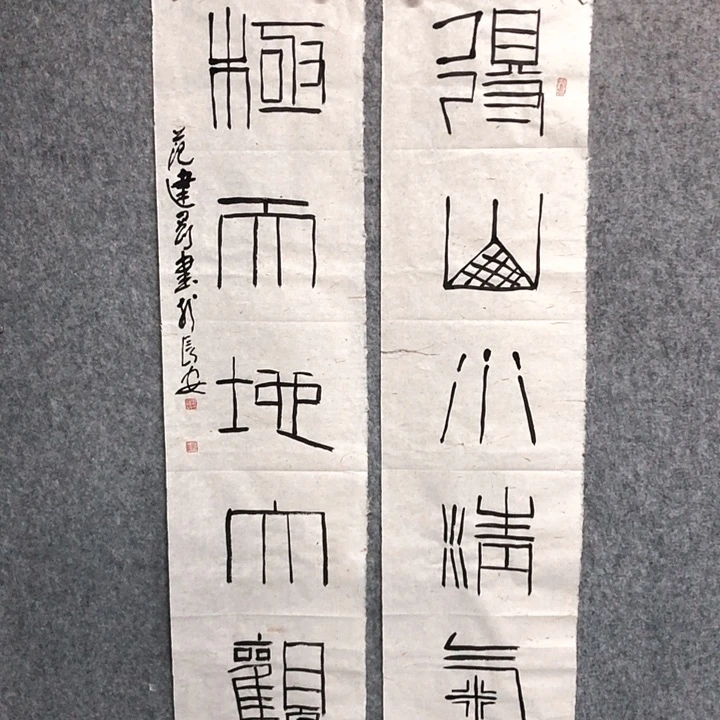 得山水清氣
極天地大觀
范建書於長安